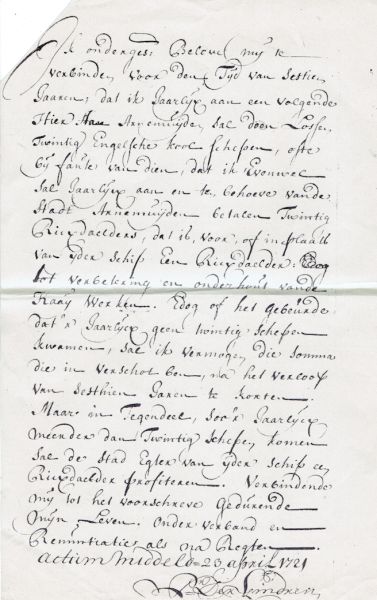 Ik onderges: Belove mij te
verbinden, voor den Tijd van sestien
Jaaren, dat ik Jaarlijx aan een volgende
Hier Arnemuijden, sal doen Lossen,
Twintig Engelsche kool schepen, ofte
bij faute van dien, dat ik Evenwel
sal Jaarlijx aan en te, behoeve vande
Stadt Arnemuijden betalen Twintig
Rixdaelders, dat is, voor, of in plaats
van ijder schip Een Rixdaelder:
tot verbetering en onderhout vande
Kaaij Werken. Edog of het gebeurde
dat'r Jaarlijx geen twintig schepen
kwamen, sal ik vermogen die somma
die in verschot ben, na het verloop
van sesthien Jaren te korten.
Maar in Tegendeel, soo'r Jaarlijx
meerder dan Twintig schepen, komen
sal de Stad Egter van ijder schip een
Rixdaelder profiteren. Verbindende
mij tot het voorschreve Gedurende
mijn Leven. Onder verband en
Renuntiatie als na Regten.
actum middelb 23 april 1721